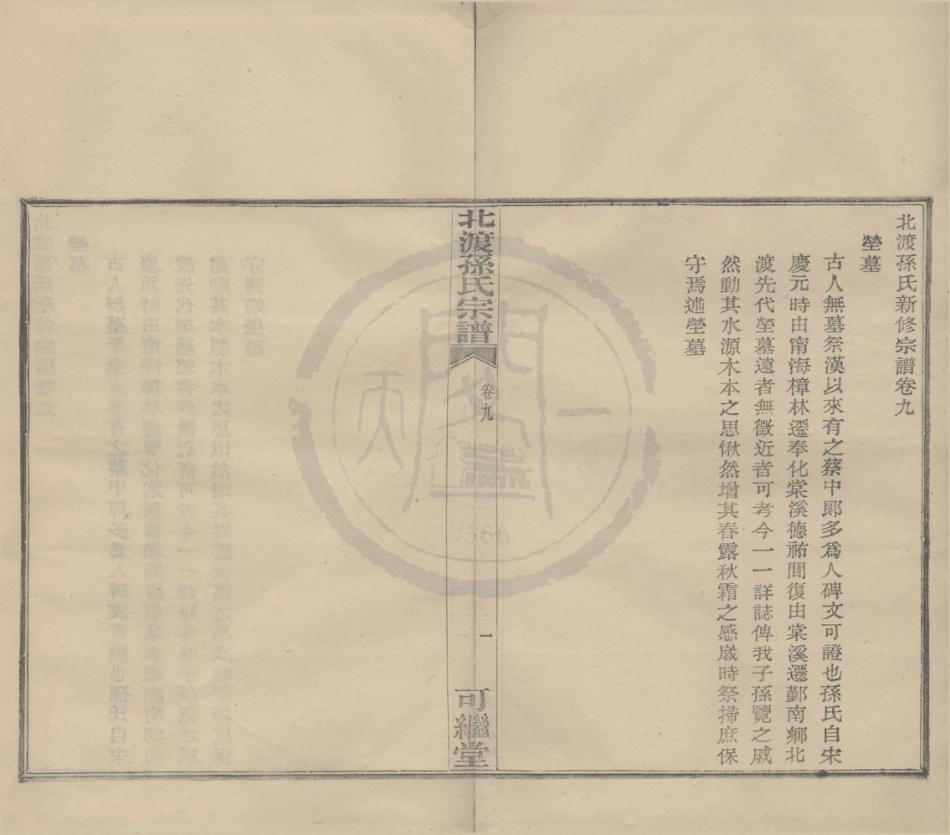 北渡孫氏新修宗譜卷九
塋墓
古人無墓祭漢以來有之蔡中郎多爲人碑文可證也孫氏自宋
慶元時由甯海樟林遷奉化棠溪德祐間復由棠溪遷鄞南鄉北
渡先代塋墓遠者無徵近者可考今一一詳誌俾我子孫覽之戚
然動其水源木本之思愀然增其春露秋霜之感歲時祭掃庶保
守焉述塋墓
北渡孫氏宗譜
卷九
一
可繼堂
天一閣
1566